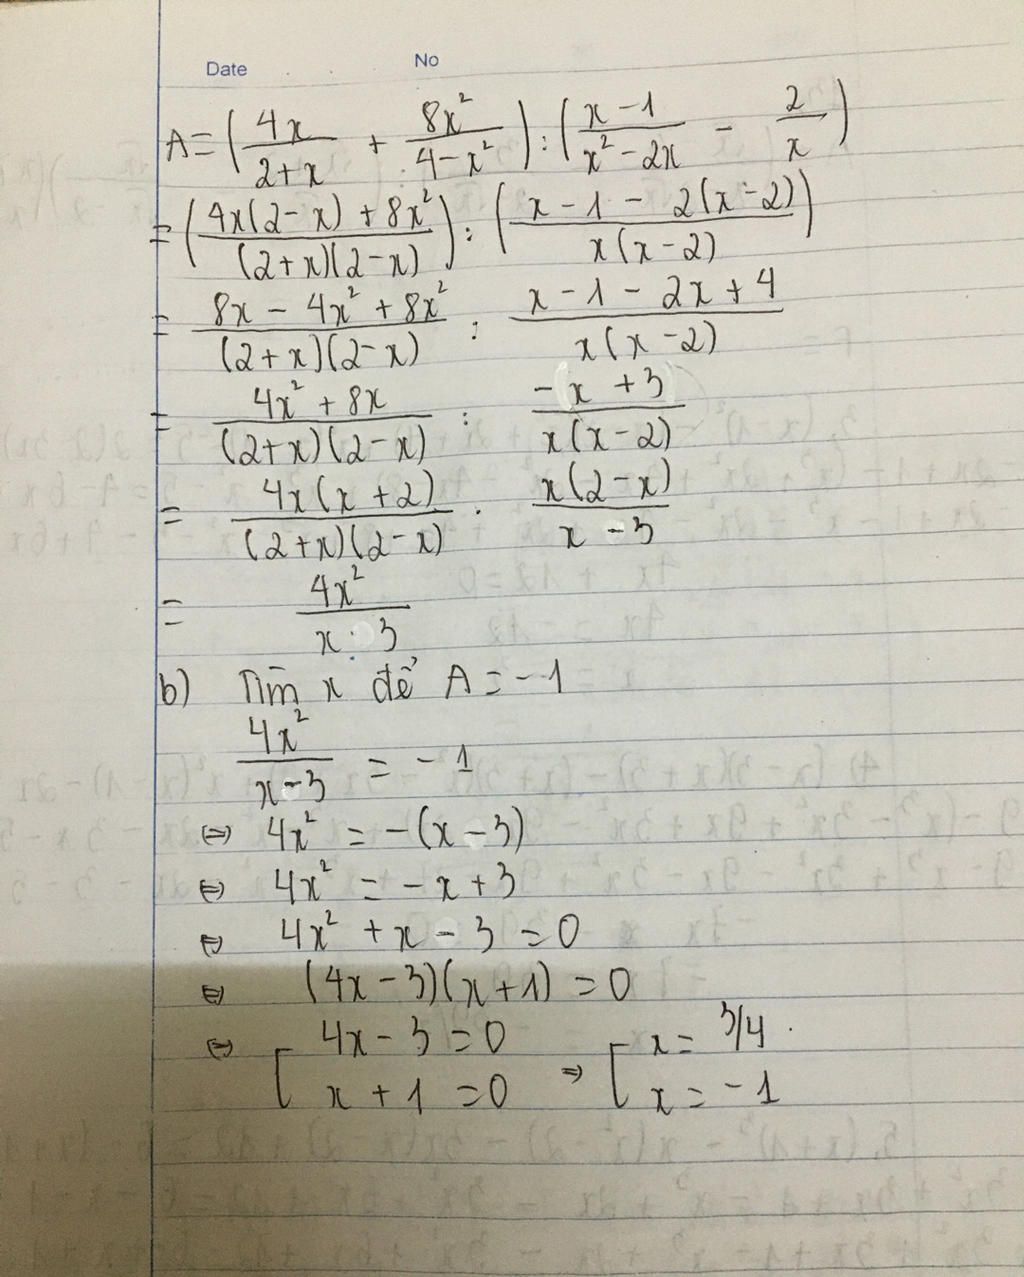 Date No
A = (4x/(2+x) + 8x²/(4-x²)) : ((x-1)/(x²-2x) - 2/x)
= ((4x(2-x) + 8x²)/((2+x)(2-x))) : ((x-1-2(x-2))/(x(x-2)))
= (8x - 4x² + 8x²)/((2+x)(2-x)) : (x-1-2x+4)/(x(x-2))
= (4x² + 8x)/((2+x)(2-x)) : (-x+3)/(x(x-2))
= (4x(x+2))/((2+x)(2-x)) . (x(2-x))/(x-3)
= 4x²/(x-3)
b) Tìm x để A = -1
4x²/(x-3) = -1
⇔ 4x² = -(x-3)
⇔ 4x² = -x+3
⇔ 4x² + x - 3 = 0
⇔ (4x-3)(x+1) = 0
⇔ [ 4x - 3 = 0 ⇒ [ x = 3/4.
x + 1 = 0 x = -1